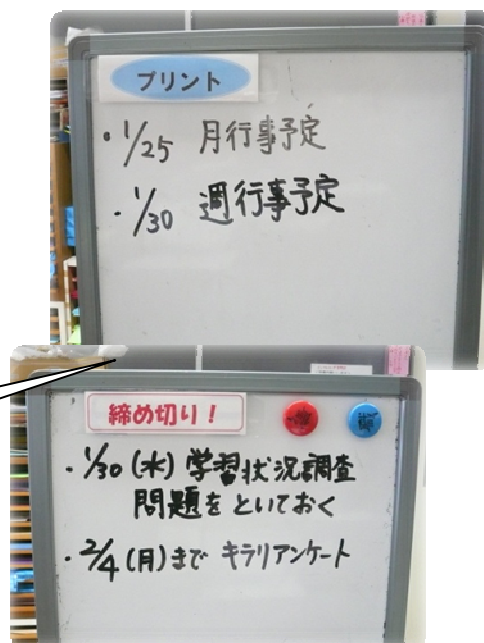 プリント
・1/25 月行事予定
・1/30 週行事予定
締め切り！
・1/30(水) 学習状況調査
問題をといておく
・2/4(月)まで キラリアンケート